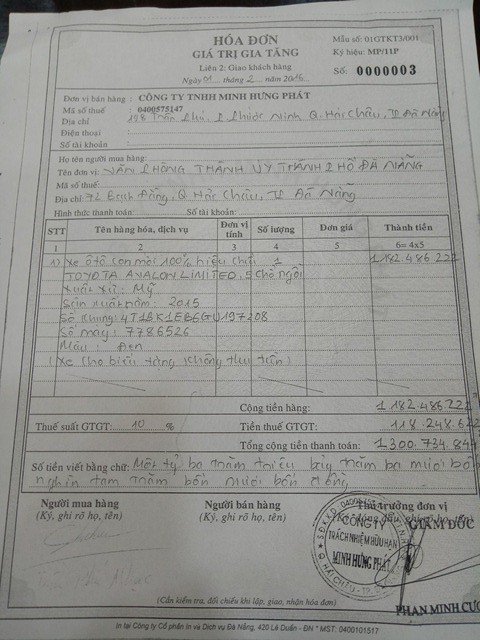 HÓA ĐƠN
GIÁ TRỊ GIA TĂNG
Liên 2: Giao khách hàng
Ngày 01 tháng 2 năm 2016
Mẫu số: 01GTKT3/001
Ký hiệu: MP/11P
Số: 0000003
Đơn vị bán hàng : CÔNG TY TNHH MINH HƯNG PHÁT
Mã số thuế : 0400575147
Địa chỉ : 198 Trần Phú, P Phước Ninh Q. Hải Châu, TP Đà Nẵng
Điện thoại :
Số tài khoản :
Họ tên người mua hàng:
Tên đơn vị: VĂN PHÒNG THÀNH ỦY THÀNH PHỐ ĐÀ NẴNG
Mã số thuế:
Địa chỉ: 72 Bạch Đằng, Q Hải Châu, TP Đà Nẵng
Hình thức thanh toán: Số tài khoản:
STT Tên hàng hóa, dịch vụ Đơn vị tính Số lượng Đơn giá Thành tiền
1 2 3 4 5 6= 4x5
1) Xe ôtô con mới 100% hiệu 1 1.182.486.222
TOYOTA AVALON LIMITED, 5 chỗ ngồi
Xuất xứ: Mỹ
Sản xuất năm: 2015
Số khung: 4T1BK1EB6GU197208
Số máy: 7786526
Màu: Đen
Xe cho biếu tặng (không thu tiền)
Cộng tiền hàng: 1.182.486.222
Thuế suất GTGT: 10 % Tiền thuế GTGT: 118.248.622
Tổng cộng tiền thanh toán: 1.300.734.844
Số tiền viết bằng chữ: Một tỷ ba trăm triệu bảy trăm ba mươi bốn
nghìn tám trăm bốn mươi bốn đồng
Người mua hàng Người bán hàng Thủ trưởng đơn vị
(Ký, ghi rõ họ, tên) (Ký, ghi rõ họ, tên)
GIÁM ĐỐC
CÔNG TY
TRÁCH NHIỆM HỮU HẠN
MINH HƯNG PHÁT
PHAN MINH CƯƠ
(Cần kiểm tra, đối chiếu khi lập, giao, nhận hóa đơn)
In tại Công ty Cổ phần In và Dịch vụ Đà Nẵng, 420 Lê Duẩn - ĐN * MST: 0400101517